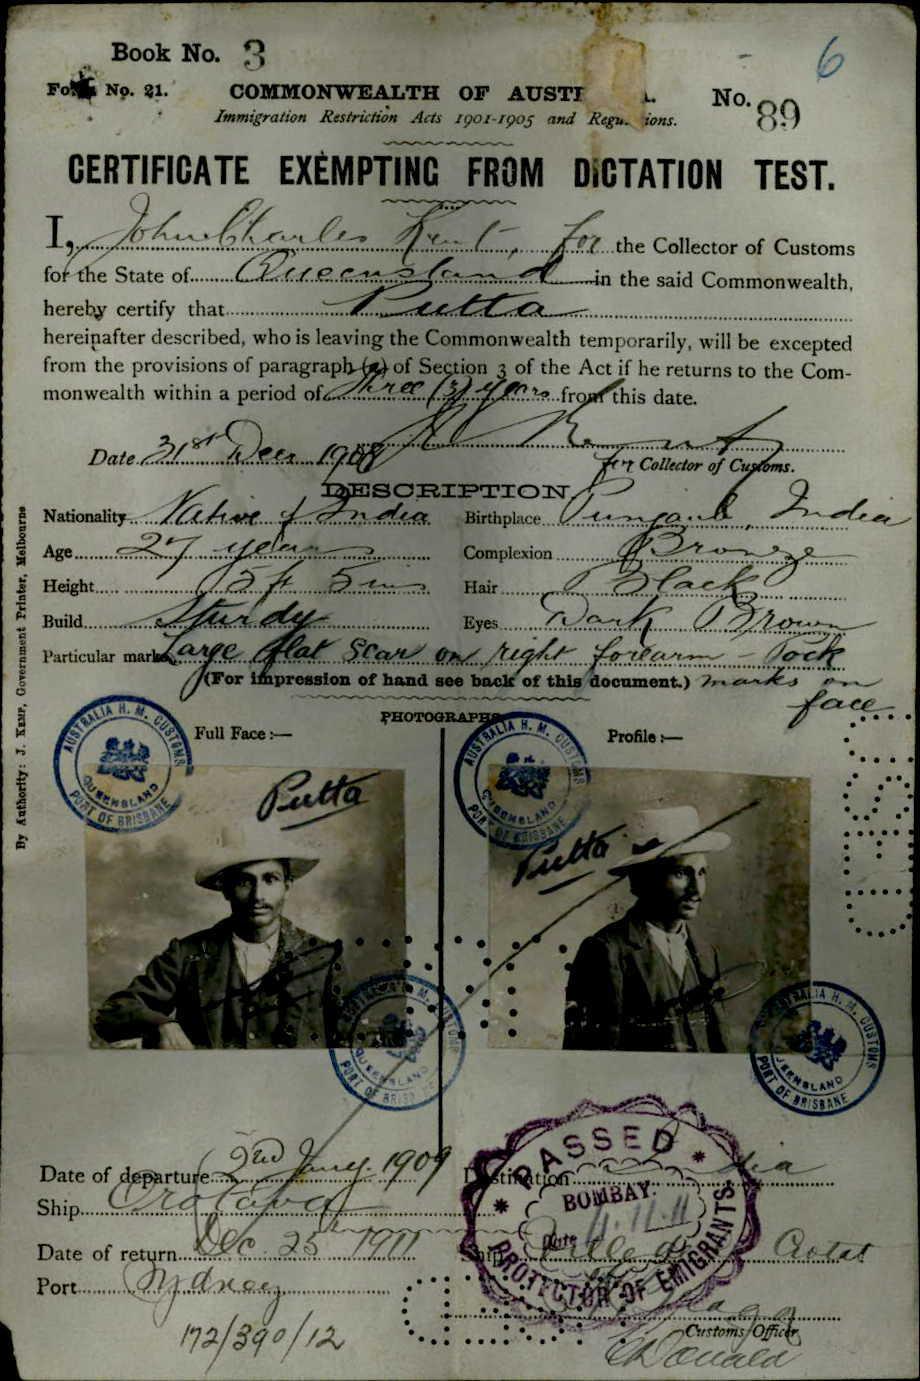 Book No. 3
6
Form No. 21.
COMMONWEALTH OF AUSTRALIA.
No. 89
Immigration Restriction Acts 1901-1905 and Regulations.
CERTIFICATE EXEMPTING FROM DICTATION TEST.
I, John Charles Kent, for the Collector of Customs
for the State of Queensland in the said Commonwealth,
hereby certify that Putta
hereinafter described, who is leaving the Commonwealth temporarily, will be excepted
from the provisions of paragraph (a) of Section 3 of the Act if he returns to the Com-
monwealth within a period of Three (3) years from this date.
Date 31st Decr 1908
for Collector of Customs.
DESCRIPTION
Nationality Native of India Birthplace Punjaub, India
Age 27 years Complexion Bronze
Height 5 ft 5 ins Hair Black
Build Sturdy Eyes Dark Brown
Particular marks Large flat scar on right forearm - Pock
(For impression of hand see back of this document.) marks on
face
PHOTOGRAPHS
Full Face :— Profile :—
AUSTRALIA H. M. CUSTOMS
QUEENSLAND
PORT OF BRISBANE
AUSTRALIA H. M. CUSTOMS
QUEENSLAND
PORT OF BRISBANE
Putta
Putta
AUSTRALIA H. M. CUSTOMS
QUEENSLAND
PORT OF BRISBANE
AUSTRALIA H. M. CUSTOMS
QUEENSLAND
PORT OF BRISBANE
By Authority: J. KEMP, Government Printer, Melbourne
PASSED
BOMBAY.
Date 4.11.11
PROTECTOR OF EMIGRANTS
Date of departure 2nd Jany. 1909 Destination India
Ship Orotava
Date of return Dec 25 1911 Ship Ville de la Ciotat
Port Sydney
Customs Officer
172/390/12